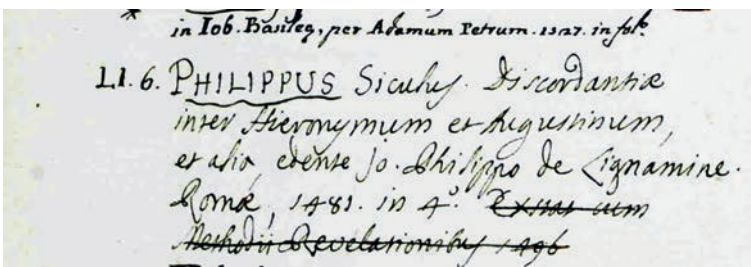 in Iob. Basileę, per Adamum Petrum. 1527. in folº.
LI. 6. PHILIPPUS Siculus. Discordantiæ
inter Hieronymum et Augustinum,
et alia, edente Jo. Philippo de Lignamine.
Romæ, 1481. in 4º. Exstat cum
Methodii Revelationibus 1496